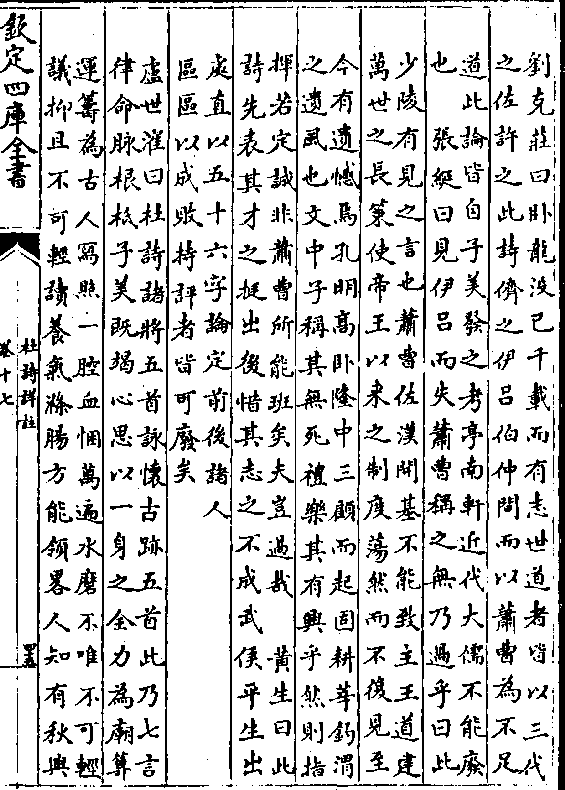 劉克莊曰卧龍沒已千載而有志世道者皆以三代
之佐許之此詩儕之伊呂伯仲間而以蕭曹為不足
道此論皆自子美發之考亭南軒近代大儒不能廢
也　張綖曰見伊呂而失蕭曹稱之無乃過乎曰此
少陵有見之言也蕭曹佐漢開基不能致主王道建
萬世之長策使帝王以來之制度蕩然而不復見至
今有遺憾焉孔明高卧隆中三顧而起固耕莘釣渭
之遺風也文中子稱其無死禮樂其有興乎然則指
揮若定誠非蕭曹所能班矣夫豈過哉　黃生曰此
詩先表其才之挺出後惜其志之不成武侯平生出
處直以五十六字論定前後諸人
區區以成敗持評者皆可廢矣
盧世㴶曰杜詩諸將五首詠懷古跡五首此乃七言
律命脉根柢子美既竭心思以一身之全力為廟算
運籌為古人寫照一腔血悃萬遍水磨不唯不可輕
議抑且不可輕讀養氣滌腸方能領畧人知有秋興
欽定四庫全書
杜詩詳註
卷十七
四五